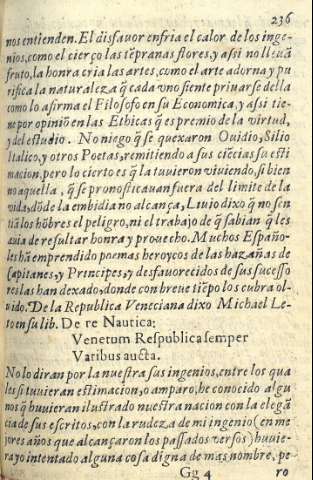 236
nos entienden. El disfauor enfria el calor de los inge-
nios, como el cierço las tẽpranas flores, y assi no lleuã
fruto, la honra cria las artes, como el arte adorna y pu
rifica la naturaleza q̃ cada vno siente priuarse della
como lo afirma el Filosofo en su Economica, y assi tie-
ne por opiniõ en las Ethicas q̃ es premio de la virtud,
y del estudio. No niego q̃ se quexaron Ouidio, Silio
Italico, y otros Poetas, remitiendo a sus ciẽcias su esti
macion, pero lo cierto es q̃ la tuuieron viuiendo, si bien
no aquella, q̃ se pronosticauan fuera del limite de la
vida, dõde la embidia no alcança, Liuio dixo q̃ no sen
tiã los hõbres el peligro, ni el trabajo de q̃ sabian q̃ les
auia de resultar honra y prouecho. Muchos Españo-
les hã emprendido poemas heroycos de las hazañas de
Capitanes, y Principes, y desfauorecidos de sus sucesso
res las han dexado, donde con breue tiẽpo los cubra ol-
uido. De la Republica Veneciana dixo Michael Le-
to en su lib. De re Nautica:
Venetum Respublica semper
Vatibus aucta.
No lo diran por la nuestra sus ingenios, entre los qua
les si tuuieran estimacion, o amparo, he conocido algu
nos q̃ huuieran ilustrado nuestra nacion con la elegã
cia de sus escritos, con la rudeza de mi ingenio (en me
jores años que alcançaron los passados versos) huuie-
ra yo intentado alguna cosa digna de mas nombre, pe-
Gg 4 ro